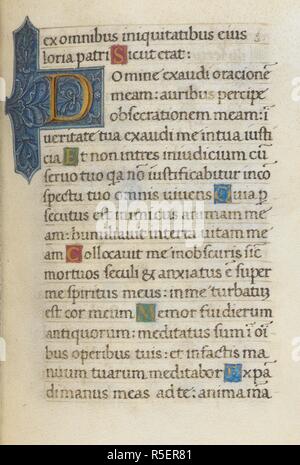 ex omnibus iniquitatibus eius
loria patri Sicut erat:
Domine exaudi oracione
meam: auribus percipe
obsecrationem meam: i
ueritate tua exaudi me in tua iusti
cia Et non intres in iudicium cū
seruo tuo qa nō iustificabitur inco
spectu tuo omnis uiuens Quia p
secutus est inimicus animam me
am: humiliauit in terra uitam me
am Collocauit me in obscuris sic
mortuos seculi & anxiatus ē supe
me spiritus meus: in me turbatū
est cor meum Memor fui dierum
antiquorum: meditatus sum i oi
bus operibus tuis: et in factis ma
nuum tuarum meditabor Expā
di manus meas ad te: anima mā
alamy
Image ID: R5ER81
www.alamy.com